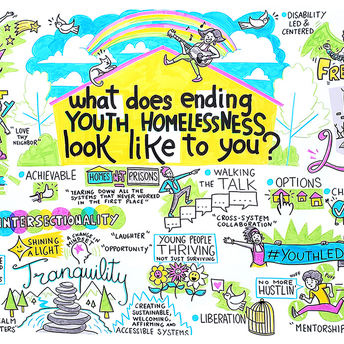 • DISABILITY
LED &
CENTERED
FRE
what does ending
YOUTH HOMELESSNESS
look like to you?
LOVE
THY
NEIGHBOR"
• ACHIEVABLE
HOMES NOT PRISONS
"TEARING DOWN ALL THE
SYSTEMS THAT NEVER WORKED
IN THE FIRST PLACE"
• WALKING
THE TALK
"CROSS-SYSTEM
COLLABORATION"
OPTIONS
CH
INTERSECTIONALITY
SHINING
A LIGHT
CHANGE IN
MINDSET
"LAUGHTER"
"OPPORTUNITY"
YOUNG PEOPLE
THRIVING
NOT JUST SURVIVING
#YOUTHLED
Tranquility
CREATING
SUSTAINABLE,
WELCOMING,
AFFIRMING AND
ACCESSIBLE SYSTEMS
• LIBERATION
NO MORE
HUSTLIN'
HUFF
PUFF
MENTORSHIP
CALM